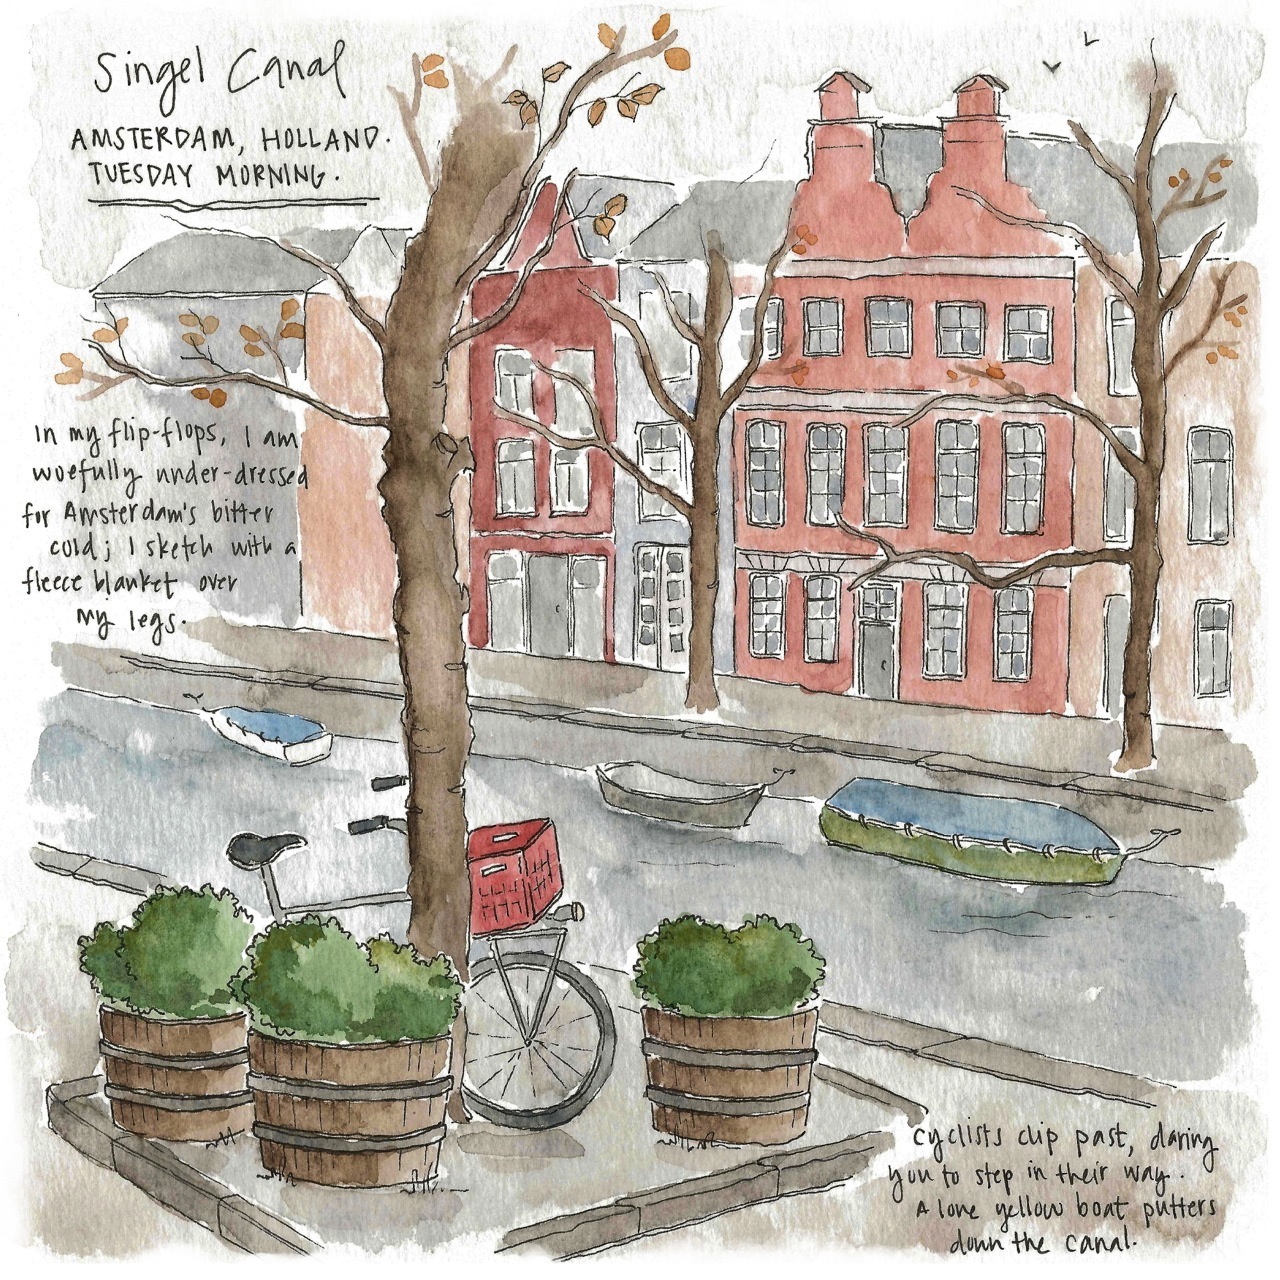 Singel Canal
AMSTERDAM, HOLLAND.
TUESDAY MORNING.
In my flip-flops, I am
woefully under-dressed
for Amsterdam's bitter
cold; I sketch with a
fleece blanket over
my legs.
cyclists clip past, daring
you to step in their way.
A lone yellow boat putters
down the canal.